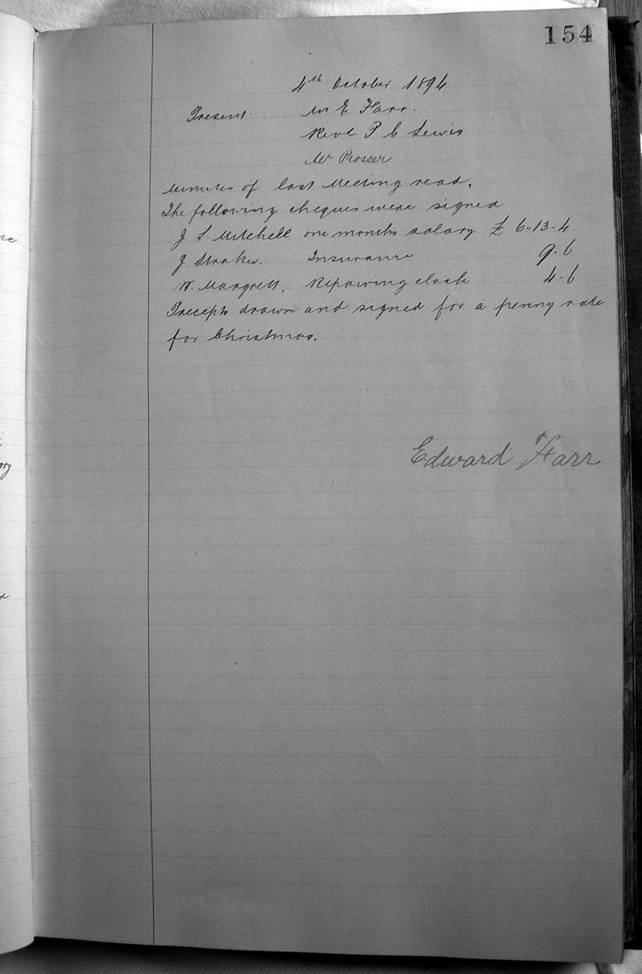 154
4th October 1894
Present Mr E Farr.
Revd P C Lewis
Mr Prosser
Minutes of last Meeting read.
The following cheques were signed
J L Mitchell one months salary £ 6-13-4
J Stroker. Insurance 9-6
W. Margrett, Repairing clock 4-6
Precepts drawn and signed for a penny rate
for Christmas.
Edward Farr